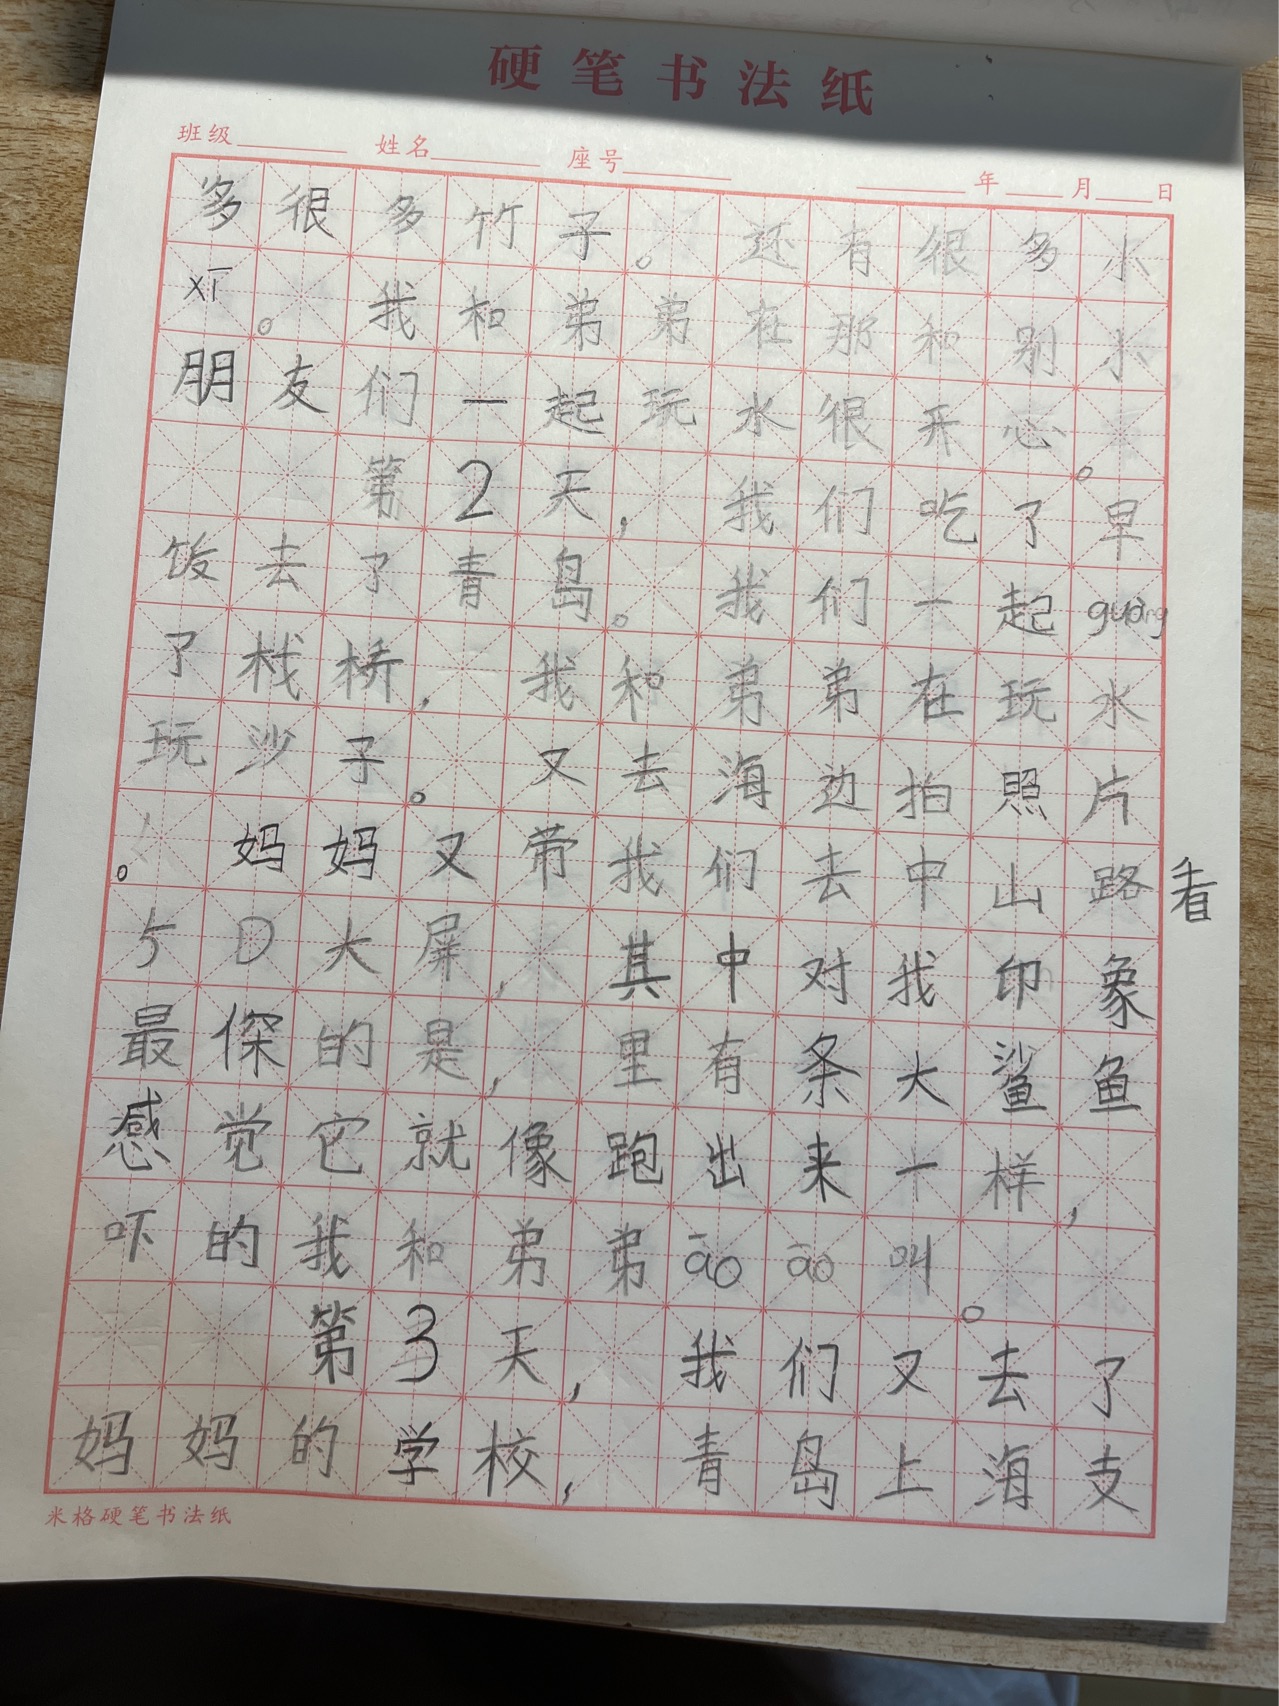 硬笔书法纸
班级 姓名 座号 年 月 日
多很多竹子。还有很多小
xī。我和弟弟在那和别小
朋友们一起玩水很开心。
第2天,我们吃了早
饭去了青岛。我们一起guàng
了栈桥,我和弟弟在玩水
玩沙子。又去海边拍照片
。妈妈又带我们去中山路看
5D大屏,其中对我印象
最深的是,里有条大鲨鱼
感觉它就像跑出来一样,
吓的我和弟弟āo āo叫。
第3天,我们又去了
妈妈的学校,青岛上海支
米格硬笔书法纸